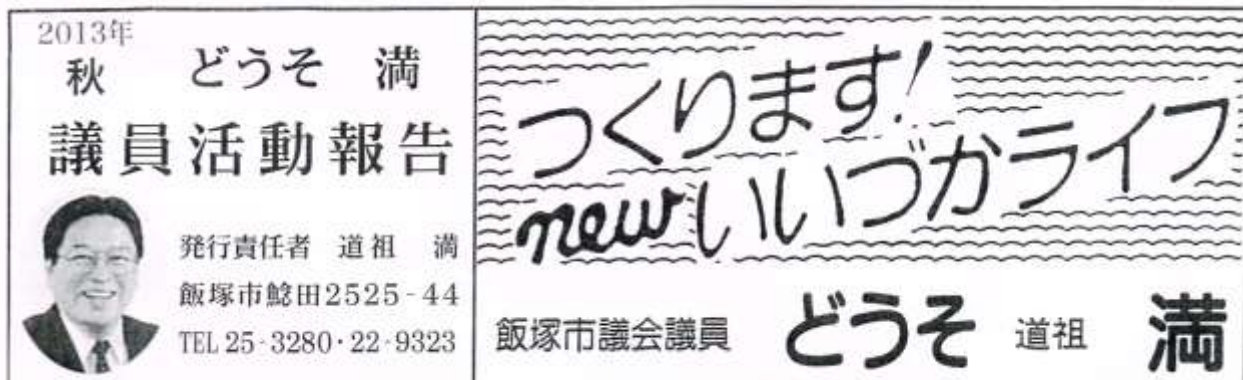 2013年
秋 どうそ 満
議員活動報告
発行責任者 道祖 満
飯塚市鯰田2525-44
TEL 25-3280・22-9323
つくります!
newいいづかライフ
飯塚市議会議員 どうそ 道祖 満